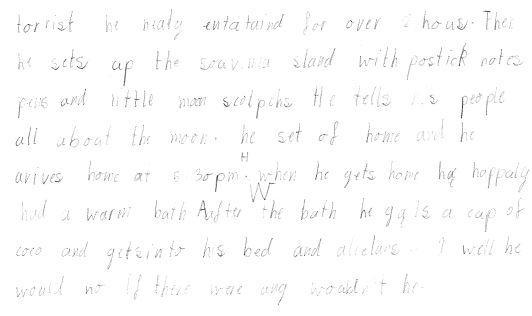 torrist he nealy entataind for over 2 hous. Then
he sets up the souvinia stand with postick notes
pens and little moon scolpchs He tells his people
all about the moon. he set of home and he
arives home at 5 30pm. When he gets home he happaly
had a warm bath After the bath he gets a cup of
coco and gets into his bed and
would no if there were any wouldn't he.